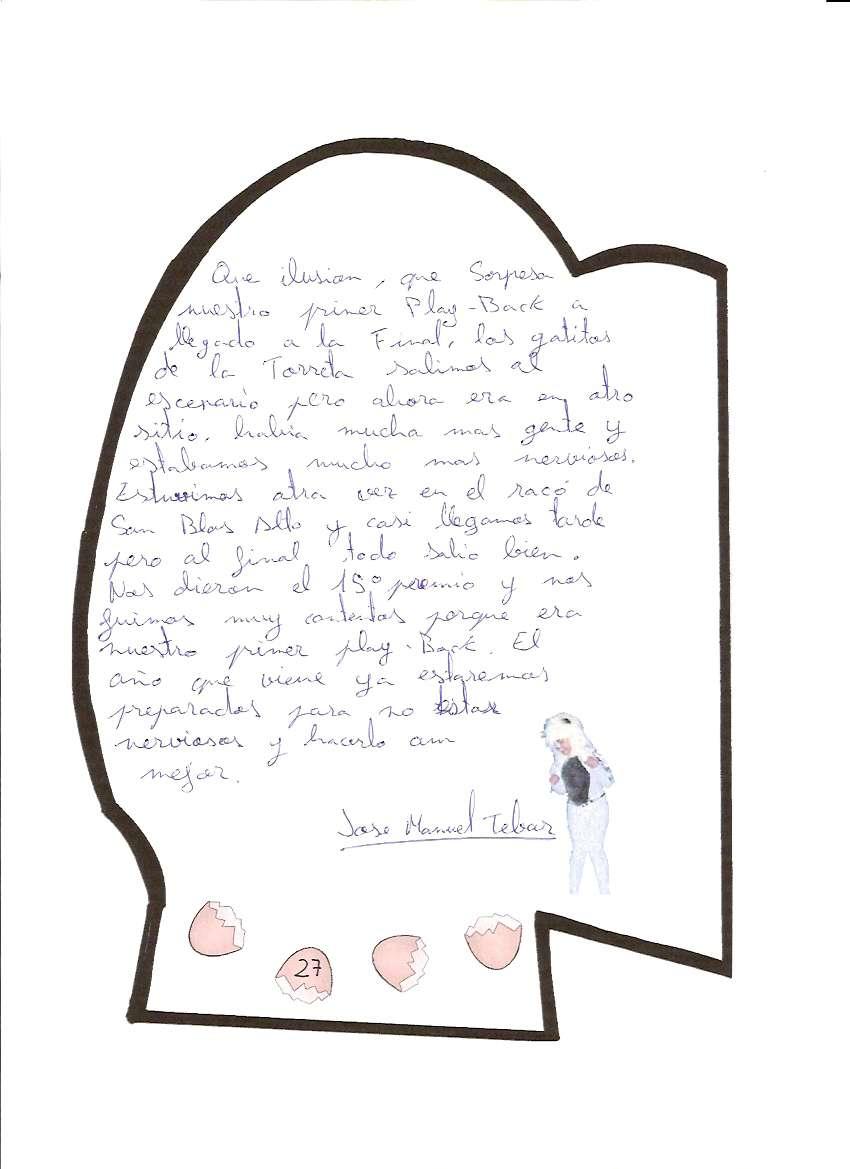 Que ilusion, que Sorpresa
nuestro primer Play-Back a
llegado a la Final, los gatitos
de la Torreta salimos al
escenario pero ahora era en otro
sitio. habia mucha mas gente y
estabamos mucho mas nerviosos.
Estuvimos otra vez en el racó de
San Blas Alto y casi llegamos tarde
pero al final todo salio bien.
Nos dieron el 15º premio y nos
fuimos muy contentos porque era
nuestro primer play-Back. El
año que viene ya estaremos
preparados para no estar
nerviosos y hacerlo aun
mejor.
Jose Manuel Tebar
27